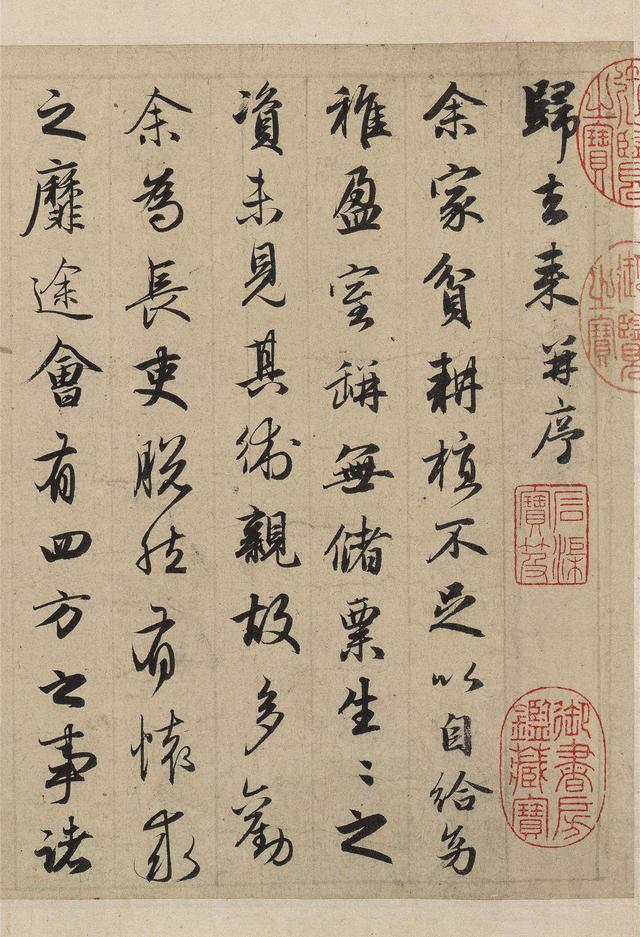 御覽
之寶
歸去来并序
余家貧耕植不足以自給幼
稚盈室缾無儲粟生〻之
資未見其術親故多勸
余為長吏脫然有懷求
之靡途會有四方之事諸
石渠
寶笈
御書房
鑑藏寶